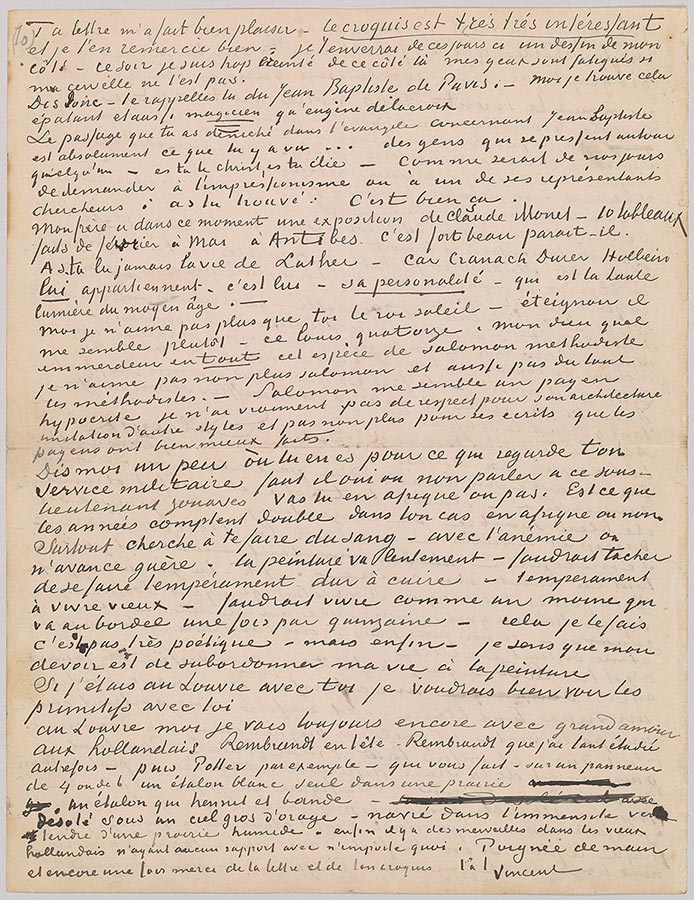 Ta lettre m'a fait bien plaisir – le croquis est très très intéressant
et je t'en remercie bien – je t'enverrai de ces jours ci un dessin de mon
côté – ce soir je suis trop éreinté de ce côté là mes yeux sont fatigués si
ma cervelle ne l'est pas.
Dis donc – te rappelles tu du Jean Baptiste de Puvis. – moi je trouve cela
épatant et aussi magicien qu'Eugène delacroix
Le passage que tu as déniché dans l'évangile concernant Jean Baptiste
est absolument ce que tu y a vu ... des gens qui se pressent autour
quelqu'un – es tu le christ, es tu élie – Comme serait de nos jours
de demander à l'impressionisme ou à un de ses représentants
chercheurs : as tu trouvé. C'est bien ça.
Mon frère a dans ce moment une exposition de Claude Monet – 10 tableaux
faits de février à Mai à Antibes. C'est fort beau parait-il.
As tu lu jamais la vie de Luther – Car Cranach Durer Holbein
lui appartiennent – c'est lui – sa personalité – qui est la haute
lumière du moyen âge. –
Moi je n'aime pas plus que toi le roi soleil – éteignoir il
me semble plutôt – ce louis quatorze. mon dieu quel
emmerdeur en tout cet espèce de Salomon méthodiste
je n'aime pas non plus Salomon et aussi pas du tout
les méthodistes. – Salomon me semble un payen
hypocrite je n'ai vraiment pas de respect pour son architecture
imitation d'autre styles et pas non plus pour ses écrits que les
payens ont bien mieux faits.
Dis moi un peu où tu en es pour ce qui regarde ton
service militaire faut il oui ou non parler a ce sous-
lieutenant zouaves vas tu en afrique ou pas. Est ce que
les années comptent double dans ton cas en afrique ou non
Surtout cherche à te faire du sang – avec l'anémie on
n'avance guère – la peinture va lentement – faudrait tacher
de se faire tempérament dur à cuire – temperament
à vivre vieux – faudrait vivre comme un moine qui
va au bordel une fois par quinzaine – cela je le fais
c'est pas très poétique – mais enfin – je sens que mon
devoir est de subordonner ma vie à la peinture
Si j'étais au Louvre avec toi je voudrais bien voir les
primitifs avec toi
au Louvre moi je vais toujours encore avec grand amour
aux hollandais Rembrandt en tête – Rembrandt que j'ai tant étudié
autrefois – puis Potter par exemple – qui vous fait – sur un panneau
de 4 ou de 6 un étalon blanc seul dans une prairie
un étalon qui hennit et bande –
désolé sous un ciel gros d'orage – navré dans l'immensité vert
tendre d'une prairie humide – enfin il y a des merveilles dans les vieux
hollandais n'ayant aucun rapport avec n'importe quoi. Poignée de main
et encore une fois merci de ta lettre et de ton croquis t. à t.
Vincent